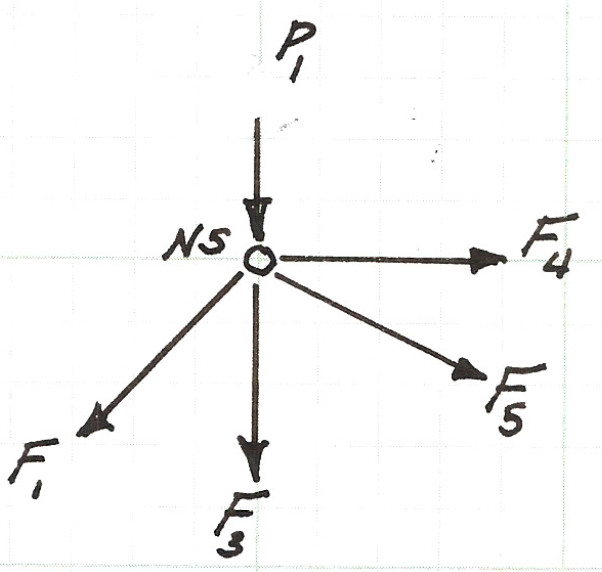 P1
N5
F4
F5
F1
F3